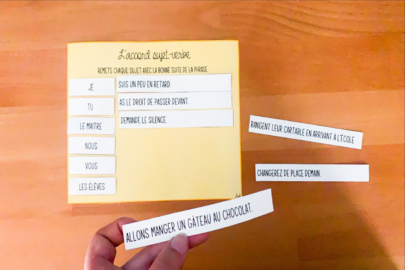 L'accord sujet-verbe
REMETS CHAQUE SUJET AVEC LA BONNE SUITE DE LA PHRASE.
JE
SUIS UN PEU EN RETARD.
TU
AS LE DROIT DE PASSER DEVANT.
LE MAITRE
DEMANDE LE SILENCE.
NOUS
VOUS
LES ÉLÈVES
RANGENT LEUR CARTABLE EN ARRIVANT À L'ÉCOLE.
CHANGEREZ DE PLACE DEMAIN.
ALLONS MANGER UN GÂTEAU AU CHOCOLAT.